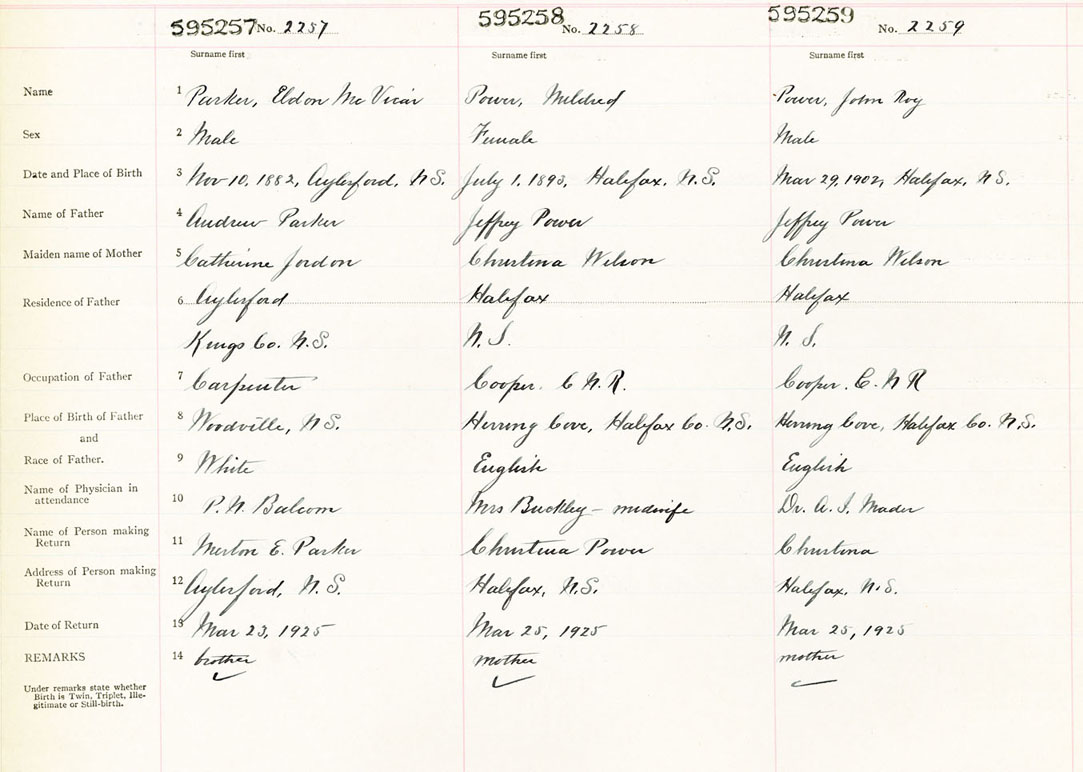 595257 No. 2257 595258 No. 2258 595259 No. 2259
Surname first Surname first Surname first
Name 1 Parker, Eldon McVicar Power, Mildred Power, John Roy
Sex 2 Male Female Male
Date and Place of Birth 3 Nov 10, 1882, Aylesford, N.S. July 1, 1893, Halifax, N.S. Mar 29, 1902, Halifax, N.S.
Name of Father 4 Andrew Parker Jeffrey Power Jeffrey Power
Maiden name of Mother 5 Catherine Jordon Christina Wilson Christina Wilson
Residence of Father 6 Aylesford Halifax Halifax
Kings Co. N.S. N.S. N.S.
Occupation of Father 7 Carpenter Cooper. C.N.R. Cooper. C.N.R
Place of Birth of Father 8 Woodville, N.S. Herring Cove, Halifax Co. N.S. Herring Cove, Halifax Co. N.S.
and
Race of Father. 9 White English English
Name of Physician in
attendance 10 P.N. Balcom Mrs Buckley - midwife Dr. A. I. Mader
Name of Person making
Return 11 Merton E. Parker Christina Power Christina
Address of Person making
Return 12 Aylesford, N.S. Halifax, N.S. Halifax, N.S.
Date of Return 13 Mar 23, 1925 Mar 25, 1925 Mar 25, 1925
REMARKS 14 brother mother mother
Under remarks state whether
Birth is Twin, Triplet, Ille-
gitimate or Still-birth.